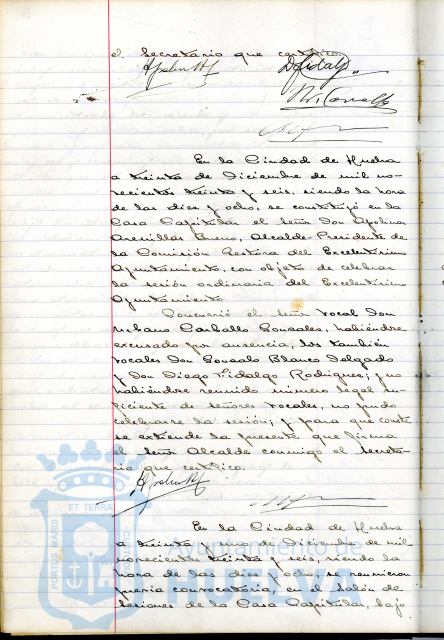 el Secretario que certifico.
En la Ciudad de Huelva
a treinta de Diciembre de mil no-
vecientos treinta y seis, siendo la hora
de las diez y ocho, se constituyó en la
Casa Capitular el Señor Don Apolinar
Arenillas Bueno, Alcalde-Presidente de
la Comisión Gestora del Excelentísimo
Ayuntamiento, con objeto de celebrar
la sesión ordinaria del Excelentísimo
Ayuntamiento.
Concurrió el señor vocal Don
Urbano Carballo Gonzales, habiéndose
excusado por ausencia, los también
vocales Don Gonzalo Blanco Delgado
y Don Diego Fidalgo Rodriguez; y no
habiéndose reunido número legal su-
ficiente de señores vocales, no pudo
celebrarse la sesión; y para que conste
se extiende la presente que firma
el Señor Alcalde conmigo el Secreta-
rio que certifico.
En la Ciudad de Huelva
a treinta y uno de Diciembre de mil
novecientos treinta y seis, siendo la
hora de las diez y ocho, se reunieron
previa convocatoria, en el Salón de
Sesiones de la Casa Capitular, bajo
PORTUS MARIS
ET TERRAE
Ayuntamiento de
HUELVA